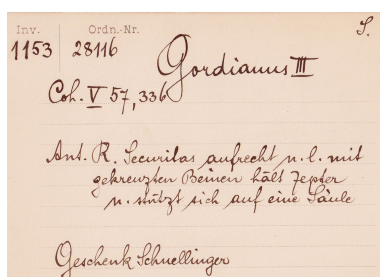 Inv. Ordn.-Nr. S.
1153 28116
Gordianus III
Coh. V 57, 336
Ant. R. Securitas aufrecht n. l. mit
gekreuzten Beinen hält Zepter
u. stützt sich auf eine Säule
Geschenk Schnellinger